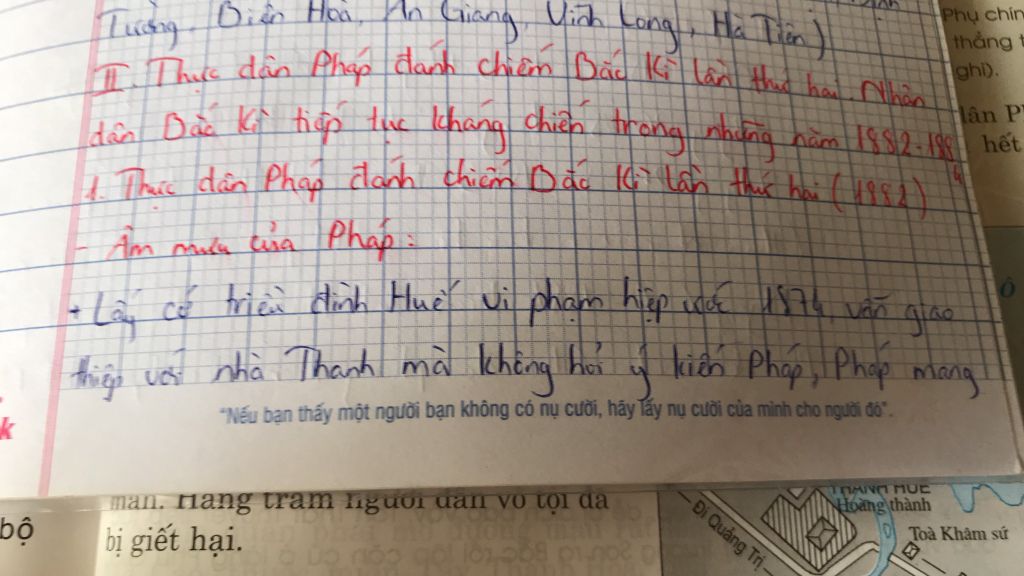 Tường, Biên Hoà, An Giang, Vĩnh Long, Hà Tiên)
II. Thực dân Pháp đánh chiếm Bắc Kì lần thứ hai. Nhân
dân Bắc Kì tiếp tục kháng chiến trong những năm 1882-1884
1. Thực dân Pháp đánh chiếm Bắc Kì lần thứ hai (1882)
- Âm mưu của Pháp:
+ Lấy cớ triều đình Huế vi phạm hiệp ước 1874, vẫn giao
thiệp với nhà Thanh mà không hỏi ý kiến Pháp, Pháp mang
"Nếu bạn thấy một người bạn không có nụ cười, hãy lấy nụ cười của mình cho người đó".
Phụ chín
thắng t
ghi).
lân P
hết
k
bộ
mãn. Hàng trăm người dân vô tội đã
bị giết hại.
THÀNH HUẾ
Hoàng thành
Đi Quảng Trị
Toà Khâm sứ